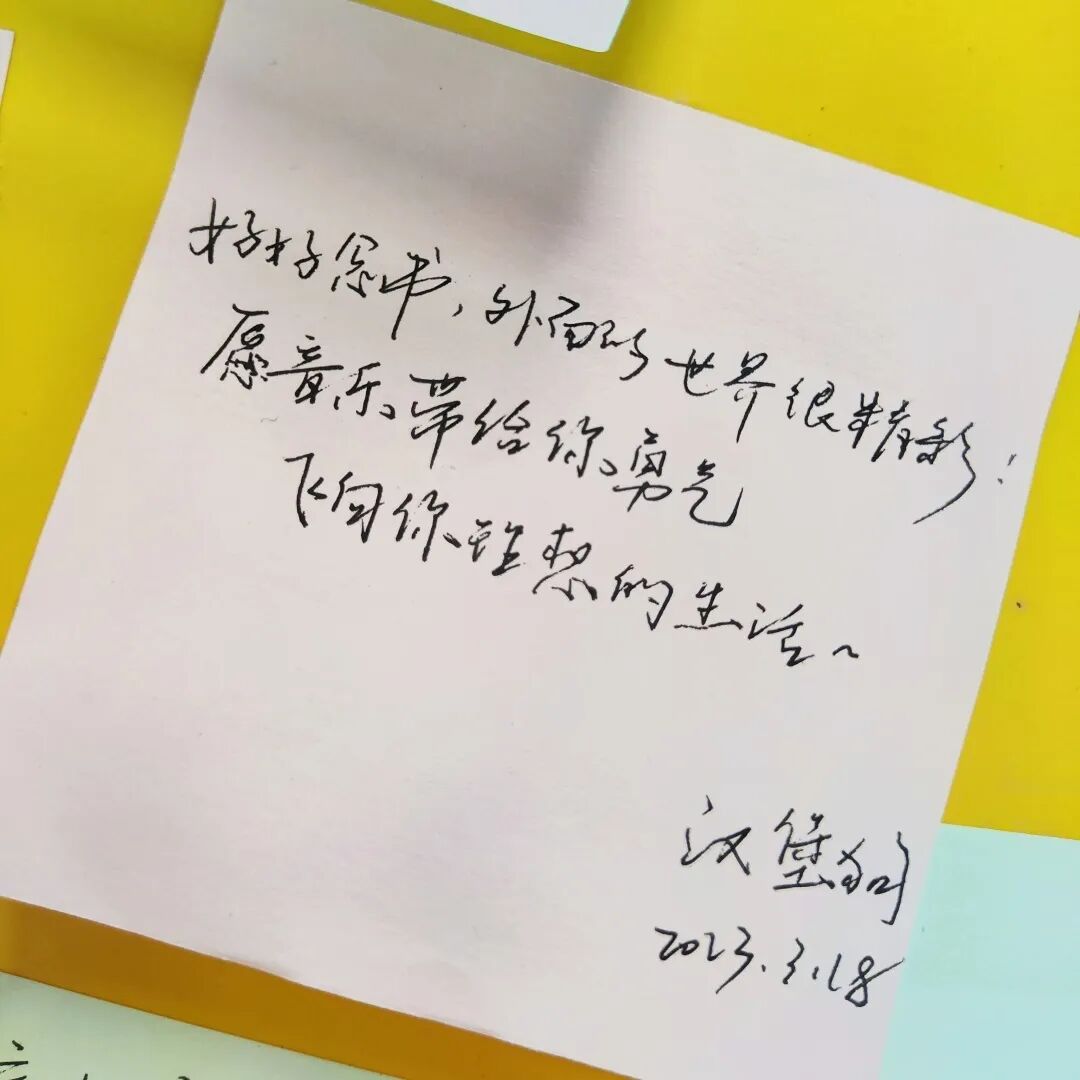 好好念书,外面的世界很精彩!
愿音乐带给你勇气
飞向你理想的生活~
汉堡狗
2023.3.18